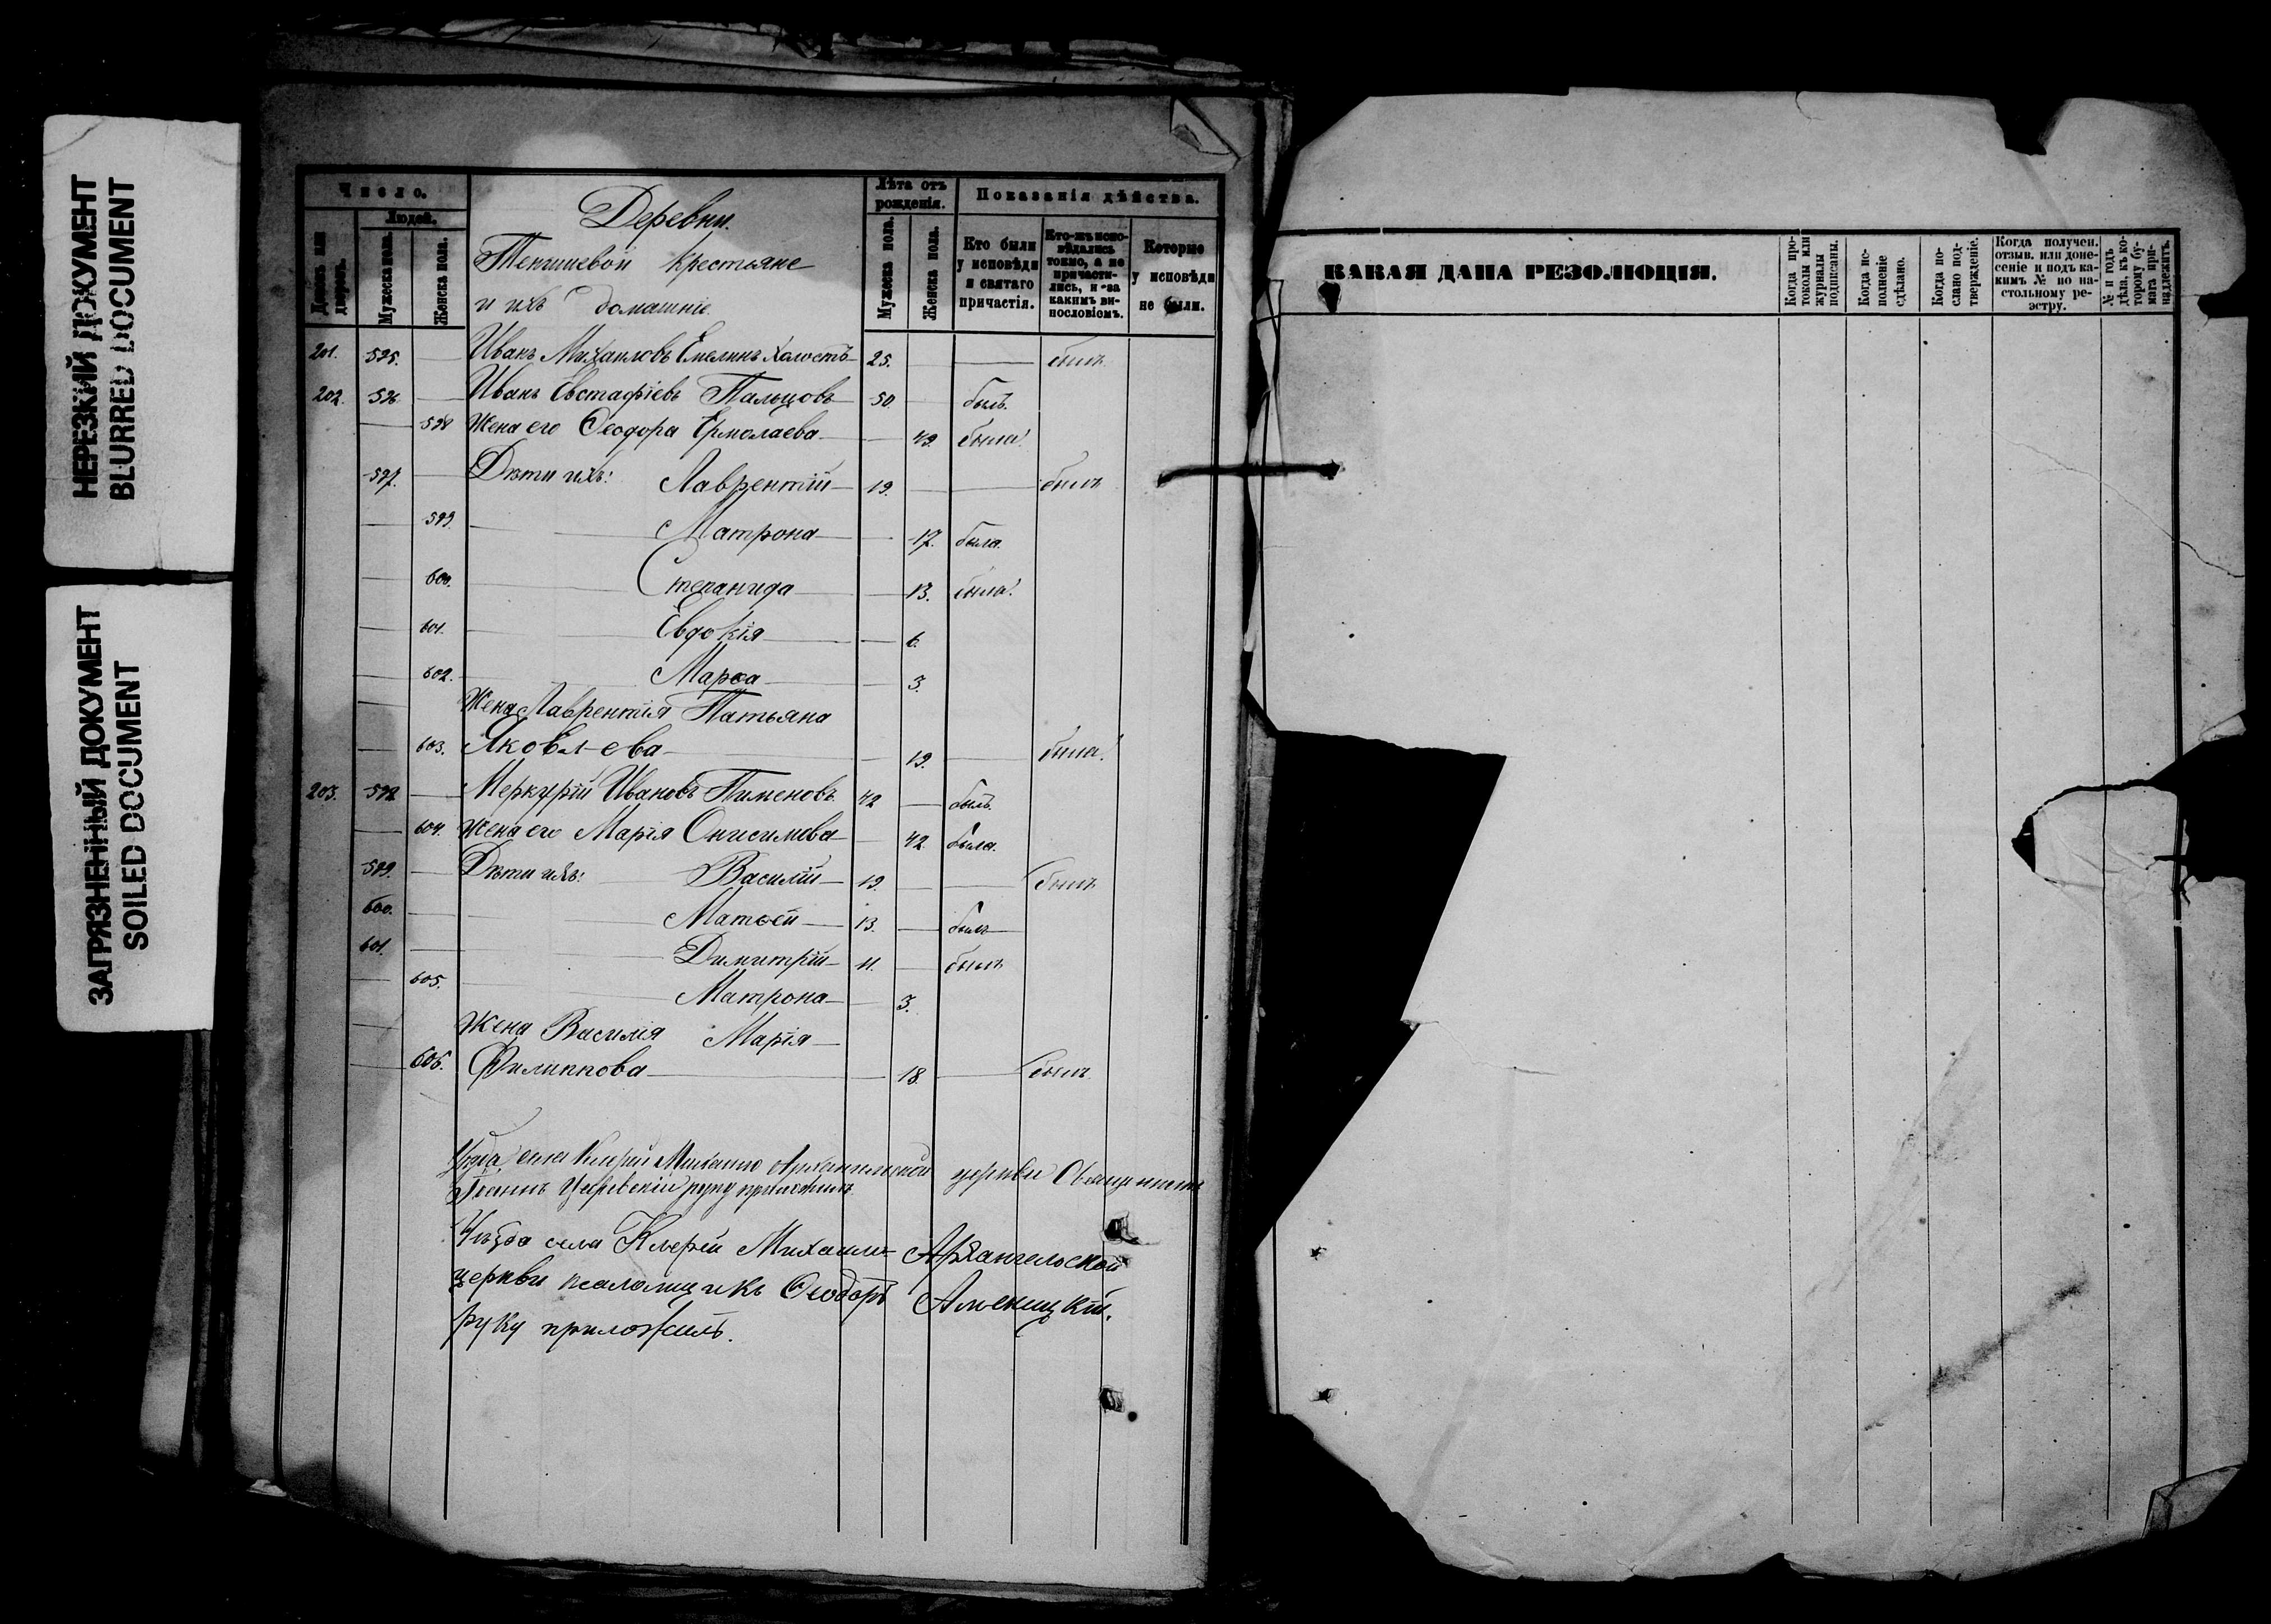 НЕРЕЗКИЙ ДОКУМЕНТ
BLURRED DOCUMENT
ЗАГРЯЗНЕННЫЙ ДОКУМЕНТ
SOILED DOCUMENT
Число.
Людей.
Домовъ или дворовъ.
Мужеска пола.
Женска пола.
Деревни
Тенишевой крестьяне
и ихъ домашніе
Лѣта отъ рожденія.
Мужеска пола.
Женска пола.
Показанія дѣйства.
Кто были у исповѣди и святаго причастія.
Кто-жъ исповѣдались токмо, а не причастились, и за какимъ винословіомъ.
Которые у исповѣди не были.
201. 595. Иванъ Михаиловъ Емелинъ холостъ 25. былъ
202. 596 Иванъ Евстафіевъ Пальцовъ 50. былъ.
598 Жена его Ѳеодора Ермолаева 49. была
597. Дѣти ихъ: Лаврентій 19. былъ
599. Матрона 17. была.
600. Степанида 13. была.
601. Евдокія 6.
602. Марѳа 3.
Жена Лаврентія Татьяна
603. Яковлева 19. была.
203. 598 Меркурій Ивановъ Пименовъ 42 былъ.
604. Жена его Марія Онисимова 42. была.
599. Дѣти ихъ: Василій 19. былъ
600. Матѳей 13. былъ
601. Димитрій 11. былъ
605. Матрона 3.
Жена Василія Марія
606. Филиппова 18. былъ
села Михаило Архангельской церкви Священникъ
Іоаннъ руку приложилъ.
села Михаило-Архангельской
церкви псаломщикъ Ѳеодоръ
руку приложилъ.
КАКАЯ ДАНА РЕЗОЛЮЦІЯ.
Когда протоколы или журналы подписаны.
Когда исполненіе сдѣлано.
Когда послано подтвержденіе.
Когда получен. отзыв. или донесеніе и подъ какимъ № по настольному реэстру.
№ и годъ дѣла, къ которому бумага принадлежитъ.